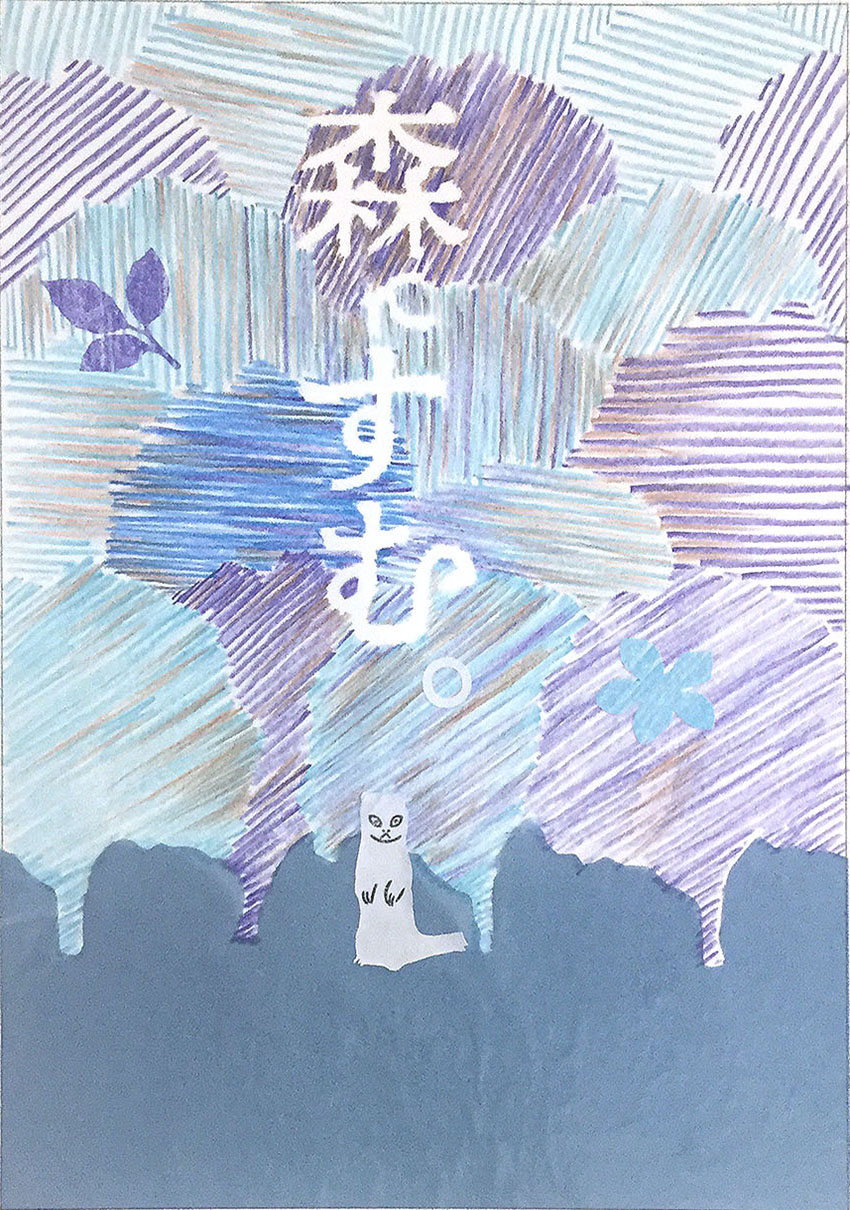 森にすむ。